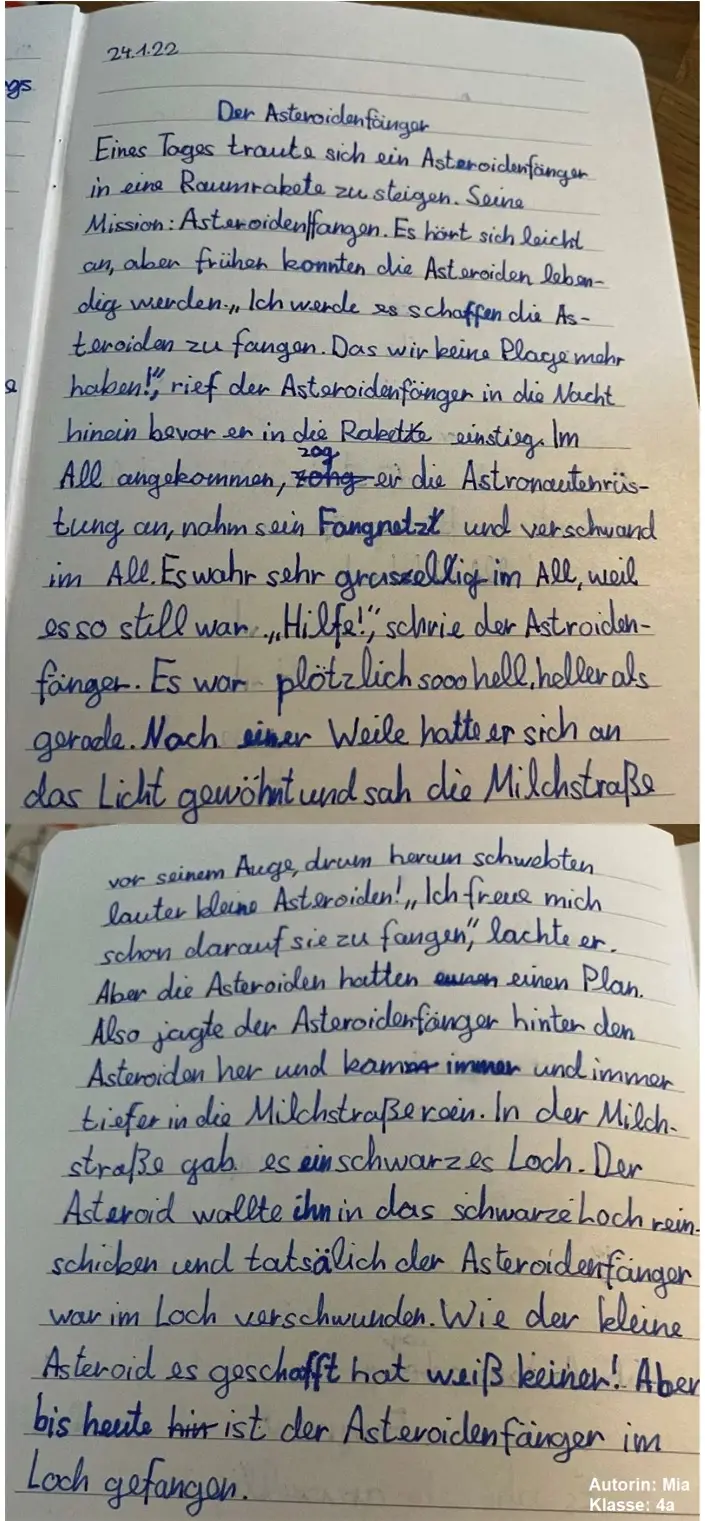 24.1.22
gs
Der Asteroidenfänger
Eines Tages traute sich ein Asteroidenfänger
in eine Raumrakete zu steigen. Seine
Mission: Asteroidenffangen. Es hört sich leicht
an, aber früher konnten die Asteroiden leben-
dig werden. „Ich werde es schaffen die As-
teroiden zu fangen. Das wir keine Plage mehr
haben!", rief der Asteroidenfänger in die Nacht
hinein bevor er in die Rakette einstieg. Im
zog
All angekommen, zohg er die Astronautenrüs-
tung an, nahm sein Fangnetzt und verschwand
im All. Es wahr sehr gruszellig im All, weil
es so still war. „Hilfe!", schrie der Astroiden-
fänger. Es war plötzlich sooo hell, heller als
gerade. Nach einer Weile hatte er sich an
das Licht gewöhnt und sah die Milchstraße
vor seinem Auge, drum herum schwebten
lauter kleine Asteroiden! „Ich freue mich
schon darauf sie zu fangen", lachte er.
Aber die Asteroiden hatten einen Plan.
Also jagte der Asteroidenfänger hinter den
Asteroiden her und kam immer und immer
tiefer in die Milchstraße rein. In der Milch-
straße gab es ein schwarzes Loch. Der
Asteroid wollte ihn in das schwarze Loch rein-
schicken und tatsälich der Asteroidenfänger
war im Loch verschwunden. Wie der kleine
Asteroid es geschafft hat weiß keiner! Aber
bis heute hin ist der Asteroidenfänger im
Loch gefangen.
Autorin: Mia
Klasse: 4a